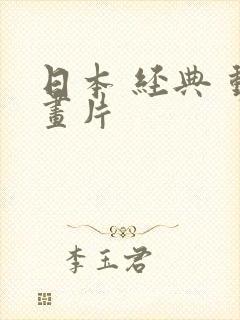 日本 經典 動
畫片
李玉君